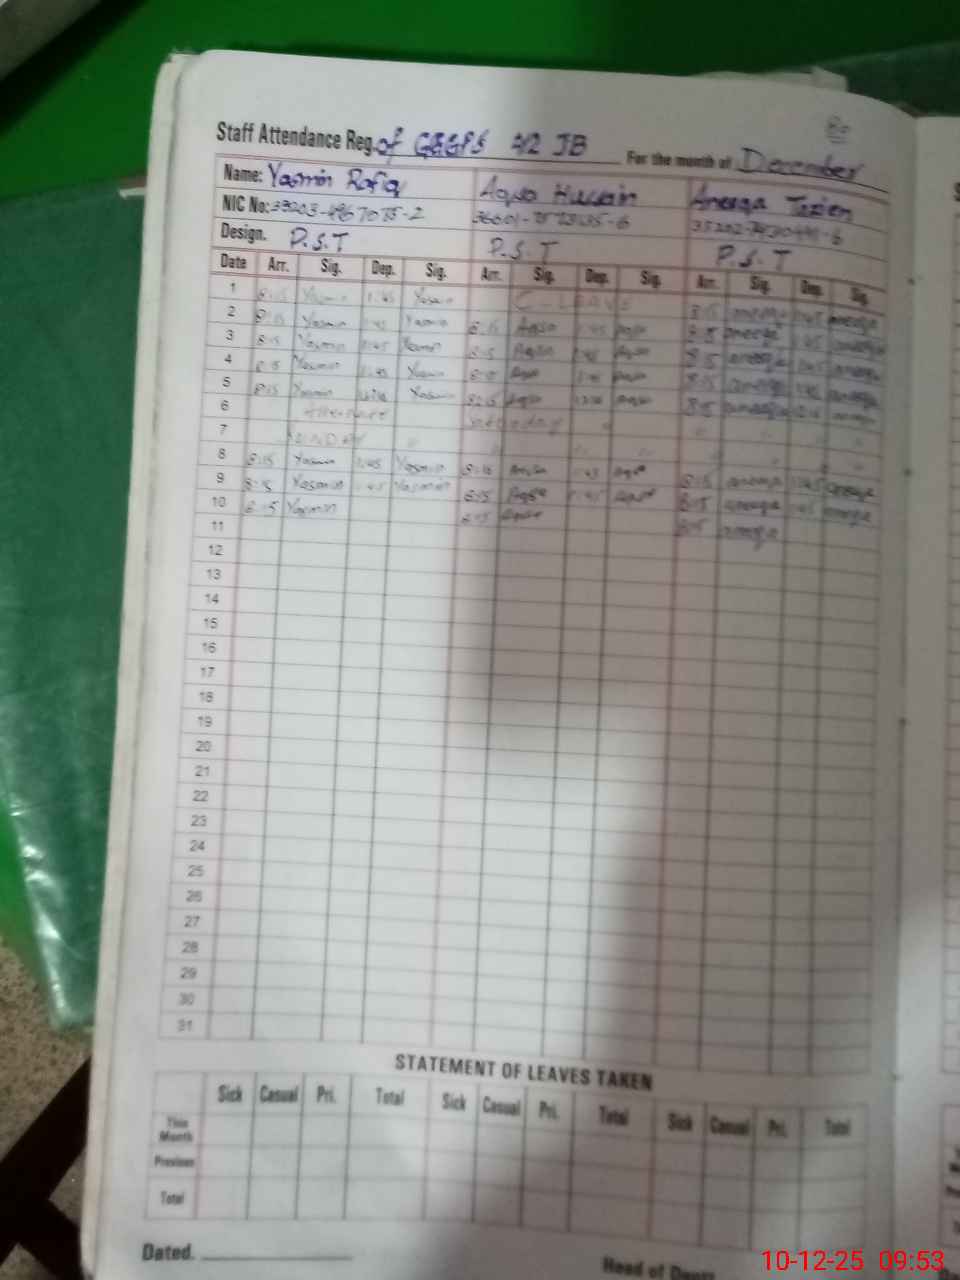 Staff Attendance Reg. of GGGPS 412 JB For the month of December
Name: Yasmin Rafiq Aqsa Hussain Aneeqa Tazien
NIC No:
Design. P.S.T P.S.T P.S.T
Date Arr. Sig. Dep. Sig. Arr. Sig. Dep. Sig. Arr. Sig. Dep. Sig.
1 8:15 Yasmin 1:45 Yasmin C_Leave 8:15 aneeqa 1:45 aneeqa
2 8:15 Yasmin 1:45 Yasmin 8:15 Aqsa 1:45 Aqsa 8:15 aneeqa 1:45 aneeqa
3 8:15 Yasmin 1:45 Yasmin 8:15 Aqsa 1:45 Aqsa 8:15 aneeqa 1:45 aneeqa
4 8:15 Yasmin 1:45 Yasmin 8:15 Aqsa 1:45 Aqsa 8:15 aneeqa 1:45 aneeqa
5 8:15 Yasmin Yasmin 8:15 Aqsa Aqsa 8:15 aneeqa aneeqa
6 Alternate Saturday " " " " "
7 SUNDAY " " " " " " " "
8 8:15 Yasmin 1:45 Yasmin 8:15 Aqsa 1:45 Aqsa 8:15 aneeqa 1:45 aneeqa
9 8:15 Yasmin 1:45 Yasmin 8:15 Aqsa 1:45 Aqsa 8:15 aneeqa 1:45 aneeqa
10 8:15 Yasmin 8:15 Aqsa 8:15 aneeqa
11
12
13
14
15
16
17
18
19
20
21
22
23
24
25
26
27
28
29
30
31
STATEMENT OF LEAVES TAKEN
Sick Casual Pri. Total Sick Casual Pri. Total Sick Casual Pri. Total
This
Month
Previous
Total
Dated. Head of Deptt
10-12-25 09:53